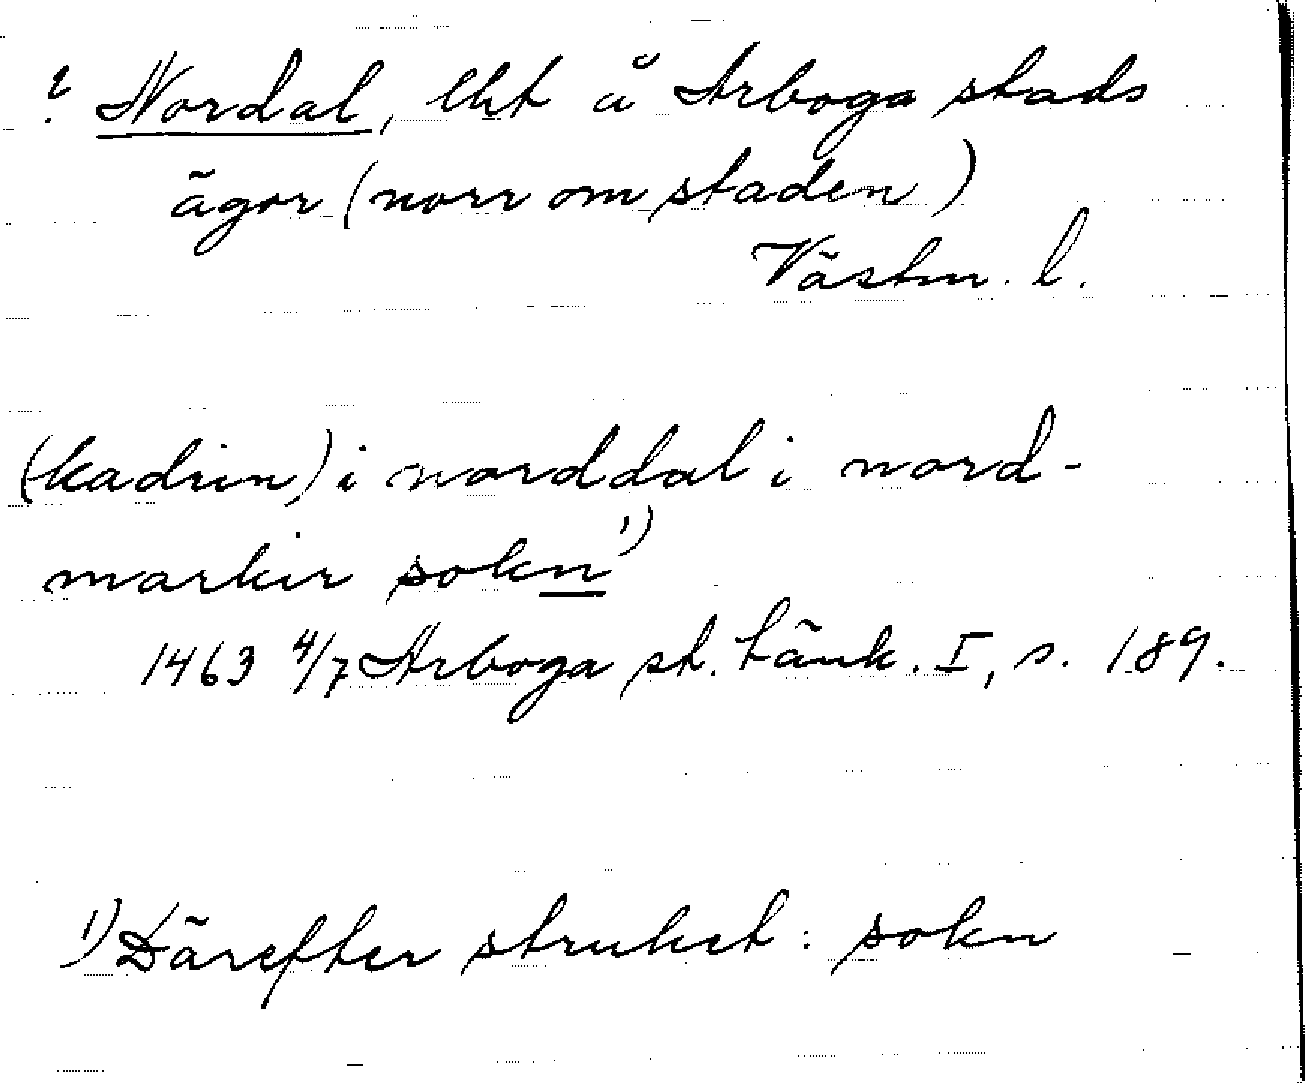 ? Nordal, lht å Arboga stads
ägor (norr om staden)
Västm. l.
(kadrin) i norddal i nord-
markir sokn 1)
1463 4/7 Arboga st. tänk. I, s. 189.
1) Därefter struket: sokn